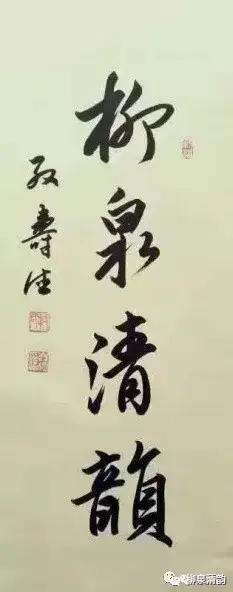 柳泉清韻
孜壽佳
柳泉清韵